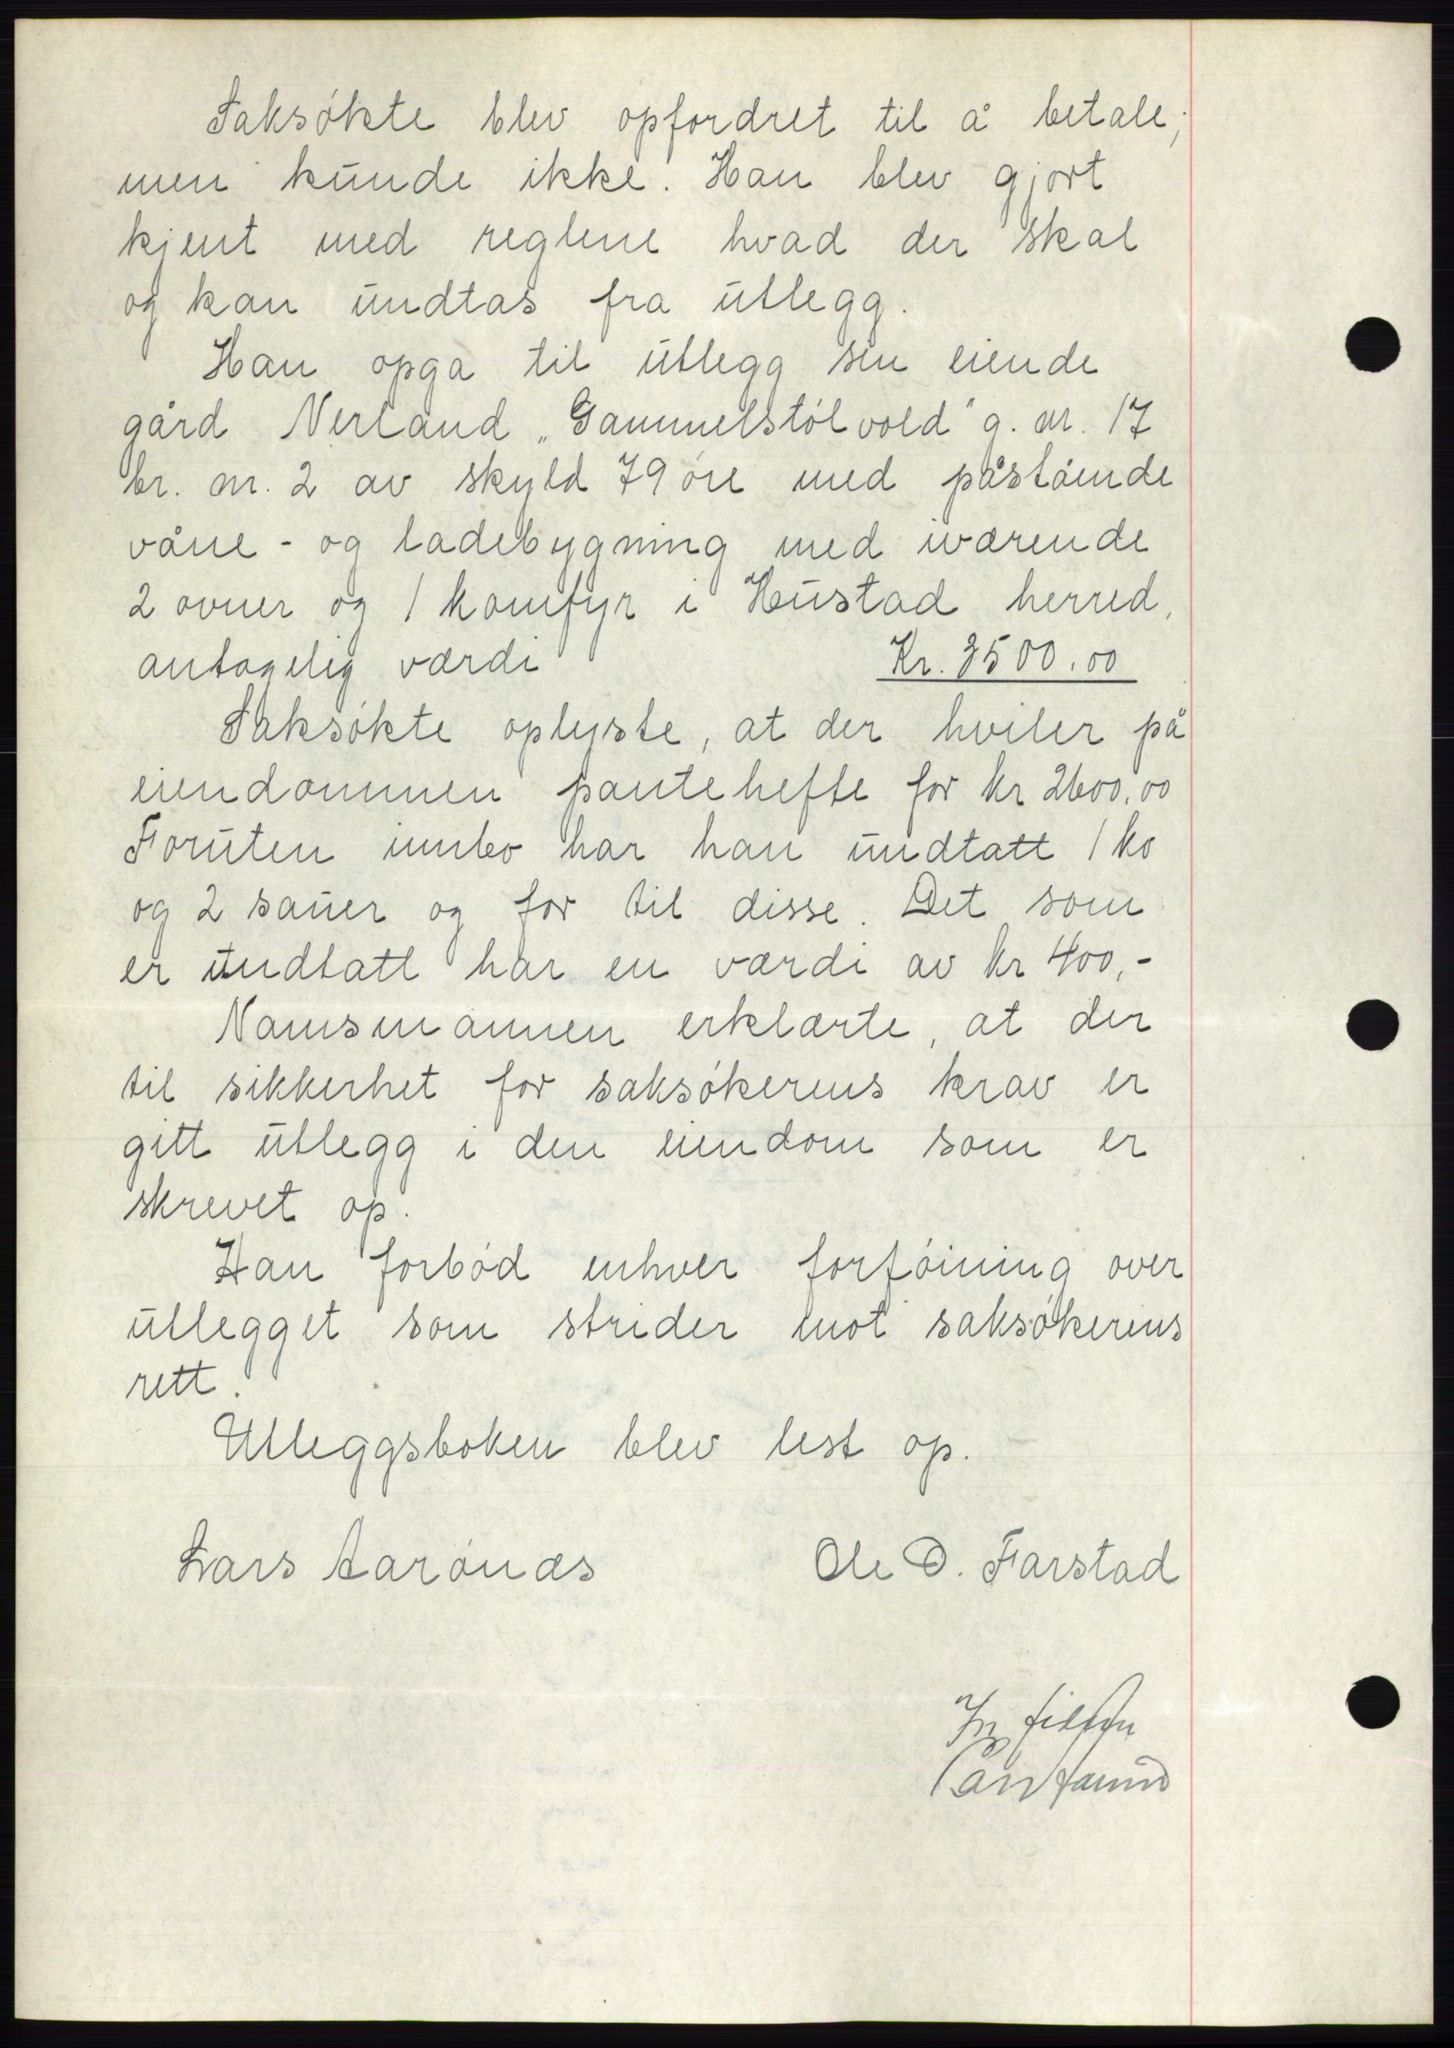 Saksøkte blev opfordret til å betale,
men kunde ikke. Han blev gjort
kjent med reglene hvad der skal
og kan undtas fra utlegg.
Han opga til utlegg sin eiende
gård Nerland „Gammelstølvold" g. nr. 17
br. nr. 2 av skyld 79 øre med påstående
våne- og ladebygning med iværende
2 ovner og 1 komfyr i Hustad herred,
antagelig værdi Kr. 3500.00
Saksøkte oplyste, at der hviler på
eiendommen pantehefte for kr 2600.00
Foruten innbo har han undtatt 1 ko
og 2 sauer og for til disse. Det som
er undtatt har en værdi av kr 400,-
Namsmannen erklærte, at der
til sikkerhet for saksøkerens krav er
gitt utlegg i den eiendom som er
skrevet op.
Han forbød enhver forføining over
utlegget som strider mot saksøkerens
rett.
Utleggsboken blev lest op.
Lars Aarønæs Ole O. Farstad